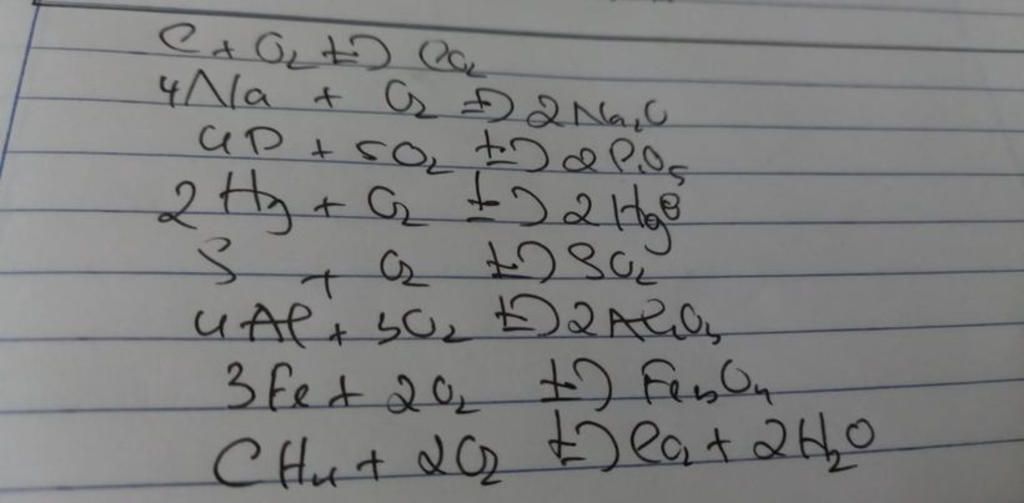 C + O₂ t°→ CO₂
4Na + O₂ t°→ 2Na₂O
4P + 5O₂ t°→ 2P₂O₅
2Hg + O₂ t°→ 2HgO
S + O₂ t°→ SO₂
4Al + 3O₂ t°→ 2Al₂O₃
3Fe + 2O₂ t°→ Fe₃O₄
CH₄ + 2O₂ t°→ CO₂ + 2H₂O